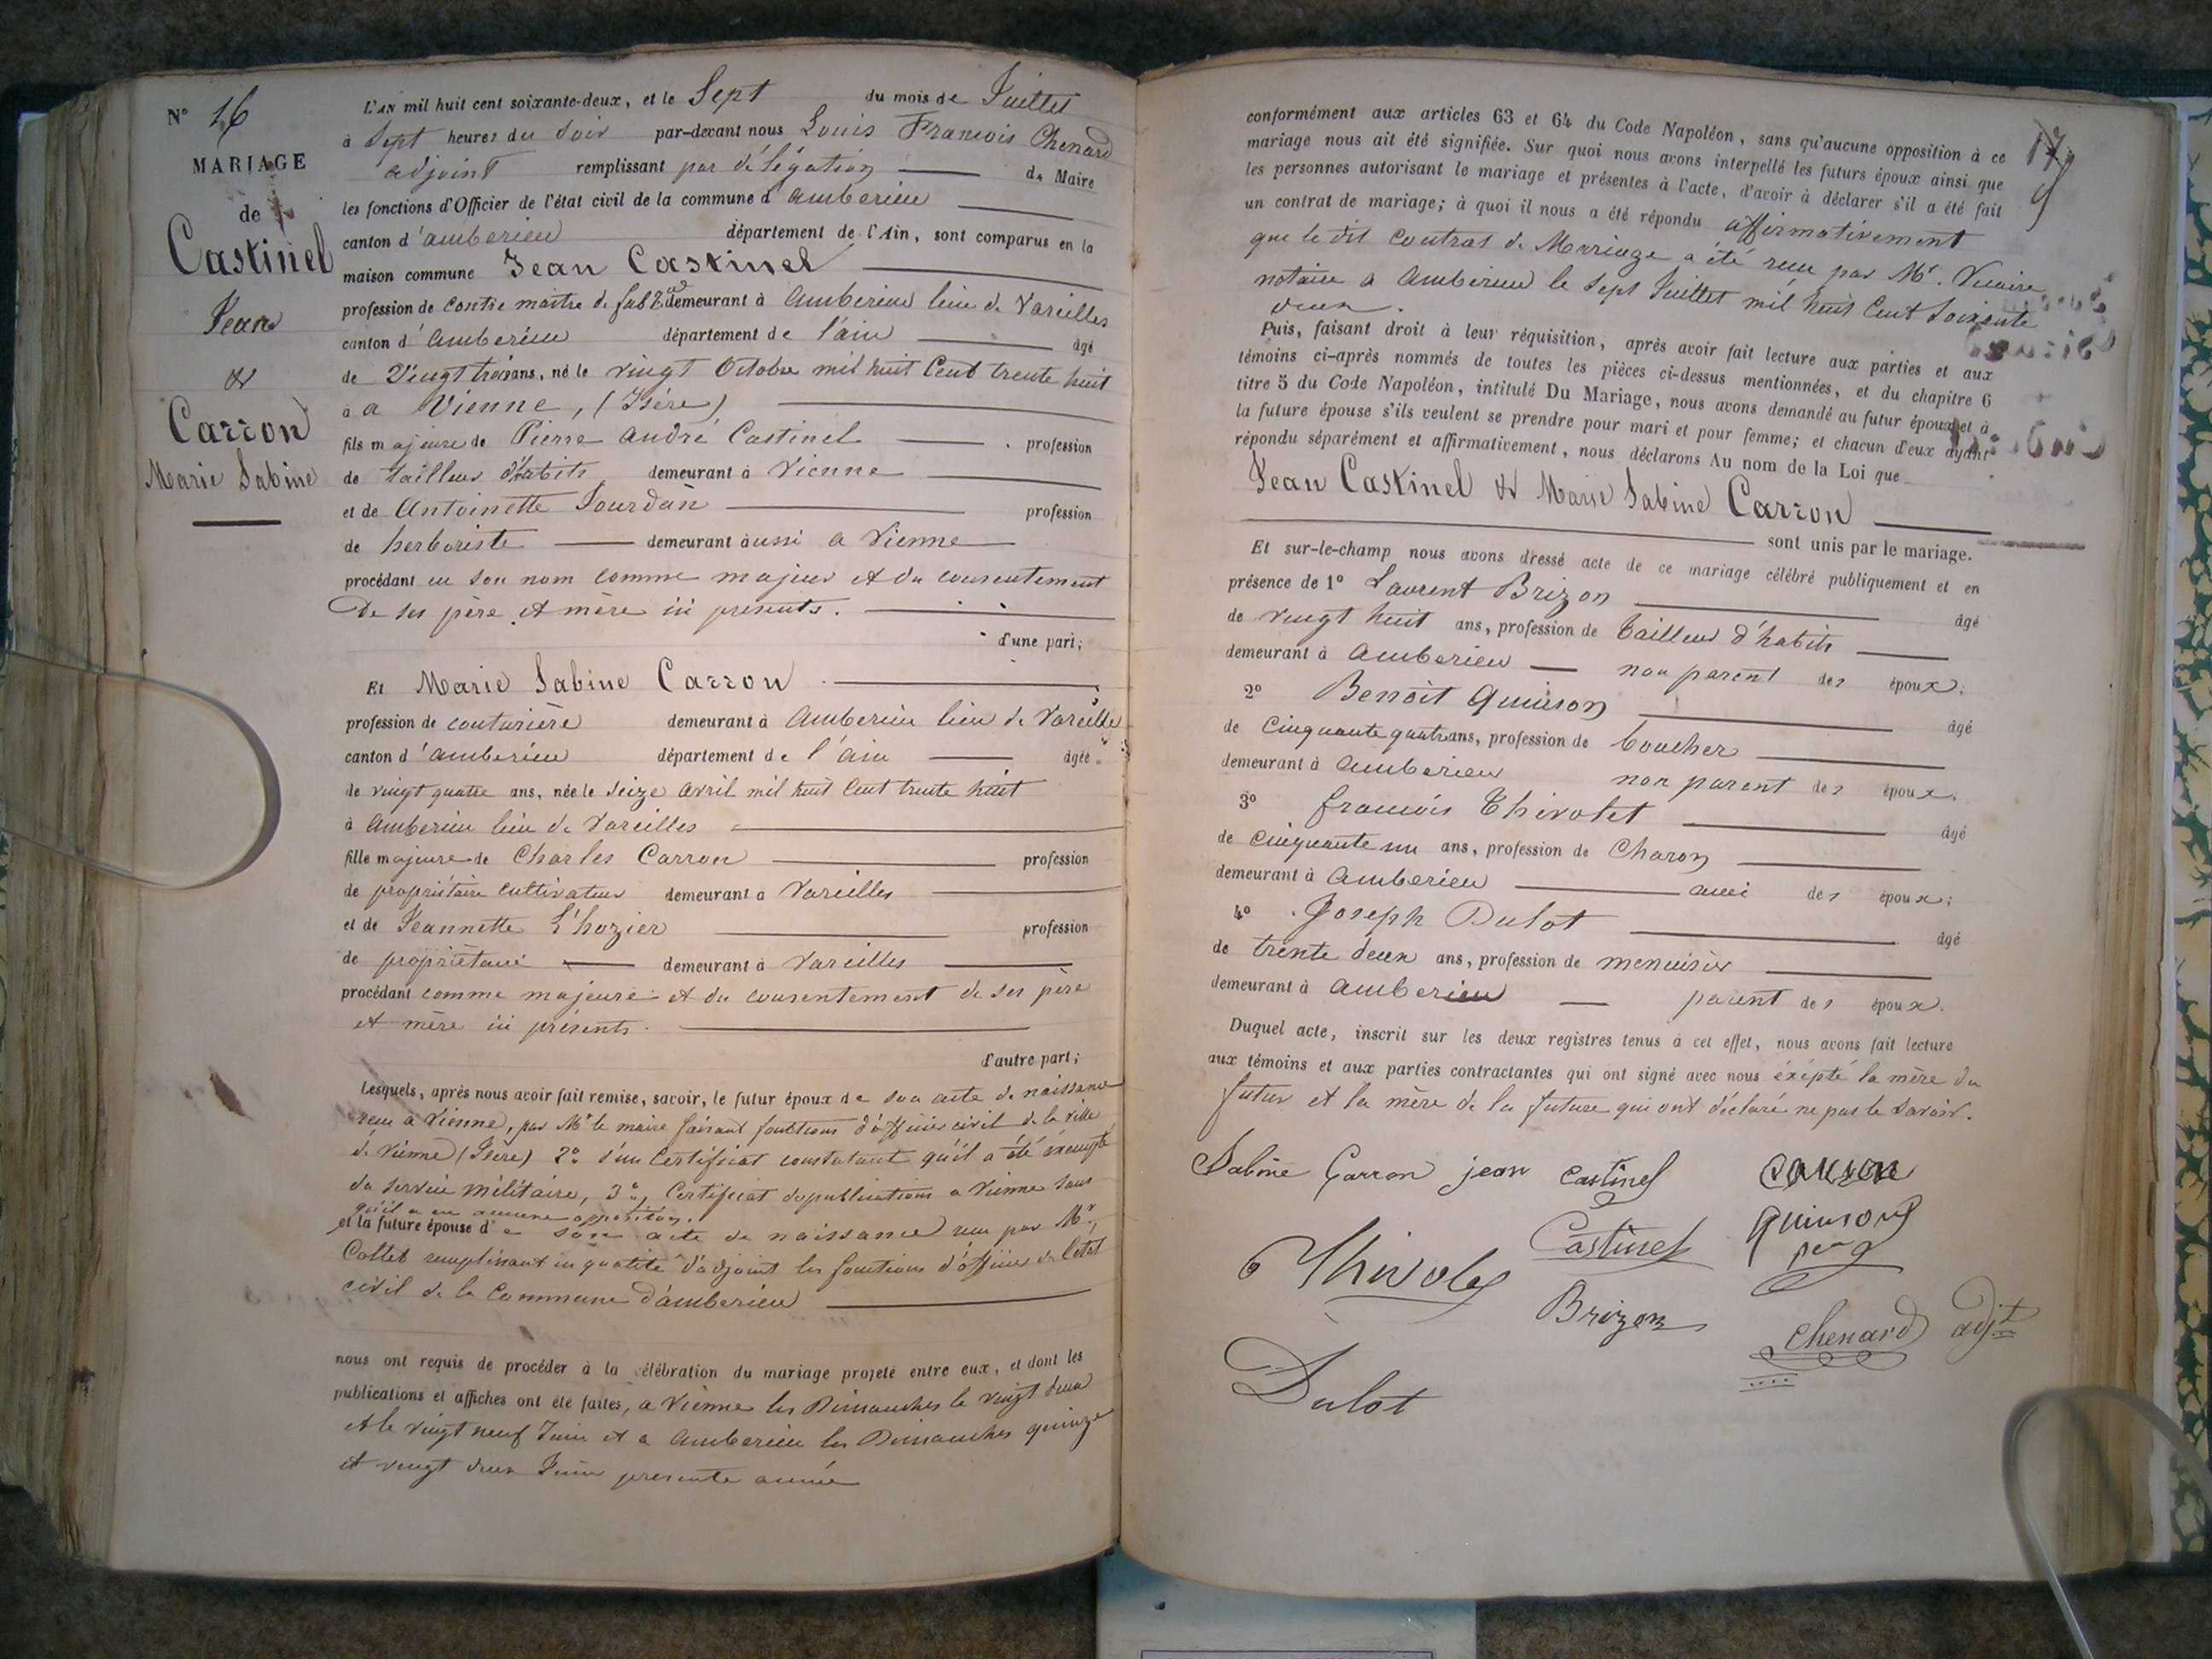 N° 16
MARIAGE
de
Castinel
Jean
&
Carron
Marie Sabine
L'AN mil huit cent soixante-deux, et le Sept du mois de Juillet
à Sept heures du Soir par-devant nous Louis François Chenard
adjoint remplissant par délégation du Maire
les fonctions d'Officier de l'état civil de la commune d'amberieu
canton d'amberieu département de l'Ain, sont comparus en la
maison commune Jean Castinel
profession de contre maitre de fabque demeurant à Amberieu lieu de Vareilles
canton d'Amberieu département de l'ain âgé
de Vingt trois ans, né le vingt Octobre mil huit Cent trente huit
à a Vienne, (Isère)
fils majeure de Pierre André Castinel profession
de tailleur d'habits demeurant à Vienne
et de Antoinette Jourdan profession
de herboriste demeurant aussi a Vienne
procédant en son nom comme majeur et du consentement
De ses père et mère ici présents.
d'une part;
Et Marie Sabine Carron
profession de couturière demeurant à Amberieu lieu de Vareille
canton d'amberieu département de l'ain âgée
de vingt quatre ans, née le Seize avril mil huit Cent trente huit
à Amberieu lieu de Vareilles
fille majeure de Charles Carron profession
de propriétaire cultivateur demeurant a Vareilles
et de Jeannette L'hozier profession
de propriétaire demeurant à Vareilles
procédant comme majeure et du consentement de ses père
et mère ici présents.
d'autre part;
Lesquels, après nous avoir fait remise, savoir, le futur époux de son acte de naissance
reçu à Vienne, par Mr le maire faisant fonctions d'officier civil de la ville
de Vienne (Isère) 2° d'un Certificat constatant qu'il a été exempté
du service militaire, 3°, Certificat de publications a Vienne sans
qu'il a eu aucune opposition.
et la future épouse de son acte de naissance reçu par Mr
Collet remplissant en qualité d'adjoint les fonctions d'officier de l'état
civil de la Commune d'amberieu
nous ont requis de procéder à la célébration du mariage projeté entre eux, et dont les
publications et affiches ont été faites, a Vienne les Dimanches le vingt deux
et le vingt neuf Juin et a Amberieu les Dimanches quinze
et vingt deux Juin presente année
conformément aux articles 63 et 64 du Code Napoléon, sans qu'aucune opposition à ce
mariage nous ait été signifiée. Sur quoi nous avons interpellé les futurs époux ainsi que
les personnes autorisant le mariage et présentes à l'acte, d'avoir à déclarer s'il a été fait
un contrat de mariage; à quoi il nous a été répondu affirmativement
que le dit Contrat de Mariage a été reçu par Mr. Vicaire
notaire a Amberieu le Sept Juillet mil huit Cent Soixante
deux.
Puis, faisant droit à leur réquisition, après avoir fait lecture aux parties et aux
témoins ci-après nommés de toutes les pièces ci-dessus mentionnées, et du chapitre 6
titre 5 du Code Napoléon, intitulé Du Mariage, nous avons demandé au futur époux et à
la future épouse s'ils veulent se prendre pour mari et pour femme; et chacun d'eux ayant
répondu séparément et affirmativement, nous déclarons Au nom de la Loi que
Jean Castinel & Marie Sabine Carron
sont unis par le mariage.
Et sur-le-champ nous avons dressé acte de ce mariage célébré publiquement et en
présence de 1° Laurent Brizon âgé
de vingt huit ans, profession de tailleur d'habits
demeurant à Amberieu non parent des époux;
2° Benoît Quinson âgé
de cinquante quatre ans, profession de boucher
demeurant à Amberieu non parent des époux.
3° françois Thivolet âgé
de cinquante un ans, profession de Charon
demeurant à Amberieu ami des époux;
4° Joseph Dulot âgé
de trente deux ans, profession de menuisier
demeurant à amberieu parent des époux.
Duquel acte, inscrit sur les deux registres tenus à cet effet, nous avons fait lecture
aux témoins et aux parties contractantes qui ont signé avec nous éxépté la mère du
futur et la mère de la future qui ont déclaré ne pas le savoir.
Sabine Carron jean castinel carron
Castinel Quinson
Thivolet
Brizon
Chenard adjt
Dulot